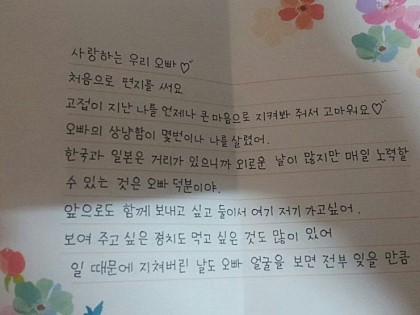 사랑하는 우리 오빠♡
처음으로 편지를 써요
고집이 지난 나를 언제나 큰 마음으로 지켜봐 줘서 고마워요♡
오빠의 상냥함이 몇번이나 나를 살렸어.
한국과 일본은 거리가 있으니까 외로운 날이 많지만 매일 노력할
수 있는 것은 오빠 덕분이야.
앞으로도 함께 보내고 싶고 둘이서 여기 저기 가고싶어.
보여 주고 싶은 경치도 먹고 싶은 것도 많이 있어
일 때문에 지쳐버린 날도 오빠 얼굴을 보면 전부 잊을 만큼